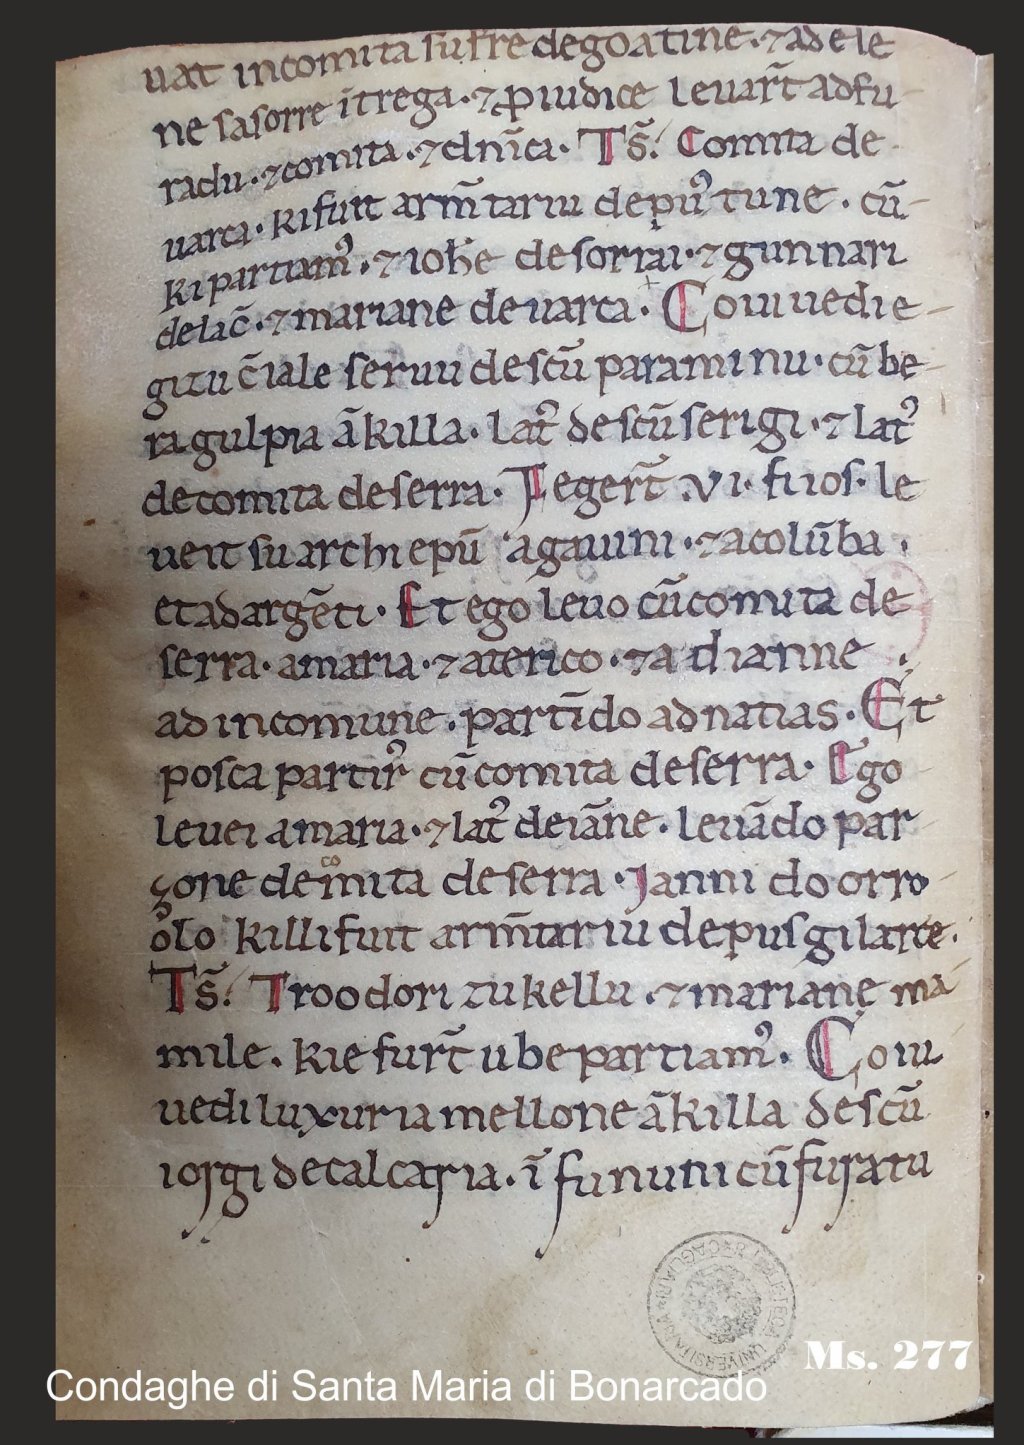 uat incomita su fre degoatine · ⁊ adele
ne sasorre ĩtrega · ⁊ ꝑ iudice leuar̃t adfu
radu · ⁊ comita · ⁊ dñica · Ts̃ / Comita de
uarca · ki fuit arm̃tariu de puꝰ tune · cũ
ki partiamꝰ · ⁊ iohẽ de sorrai · ⁊ gunnari
de lac̃ · ⁊ mariane de uarca · Coiuuedi e
gitu c̃iale seruu de scũ paraminu · cũ be
ra gulpia ãkilla · latꝰ de scũ serigi · ⁊ latꝰ
de comita de serra · Fegerc̃ · vi · fiios · le
ueit su archiepũ agauini · ⁊ a colũba ·
et ad argẽti · Et ego leuo cũ comita de
serra · a maria · ⁊ a terico · ⁊ a dianne ·
ad in comune · partĩdo ad natias · Et
posca partirꝰ cũ comita de serra · Ego
leuei a maria · ⁊ latꝰ de iãne · leuãdo par
zone de comita de serra · Janni do orro
olo killi fuit arm̃tariu de pus gilarce ·
Ts̃ / Troodori zukellu · ⁊ mariane ma
mile · ki e furc̃ ube partiamꝰ · Coiu
uedi luxuria mellone ãkilla de scũ
iorgi de calcaria · ĩ fununi cũ furatu
UNIVERSITARIA CAGLIARI
Ms. 277
Condaghe di Santa Maria di Bonarcado